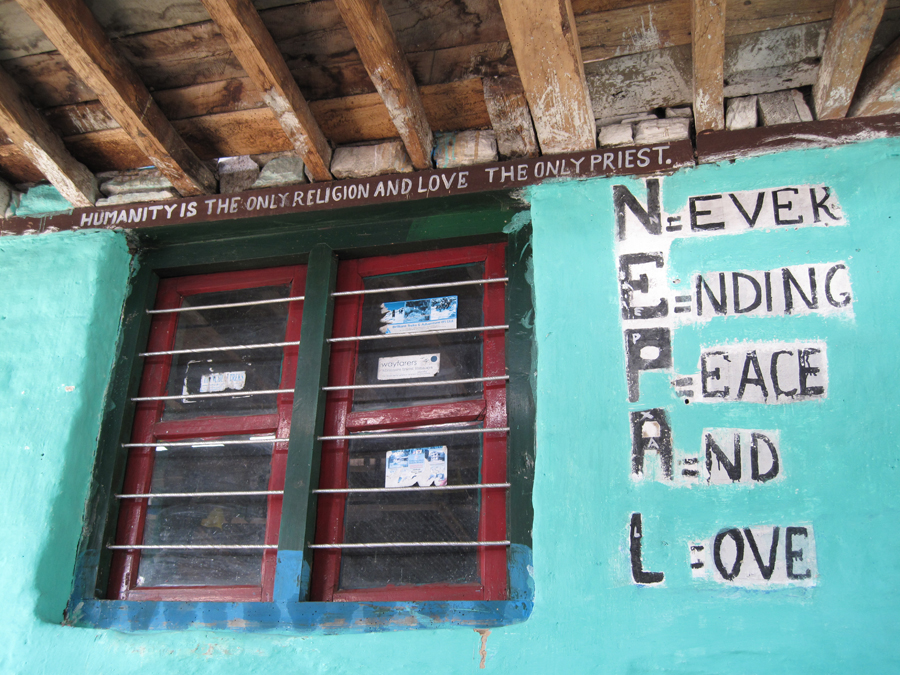 HUMANITY IS THE ONLY RELIGION AND LOVE THE ONLY PRIEST.
N=EVER
E=NDING
P=EACE
A=ND
L=OVE
wayfarers